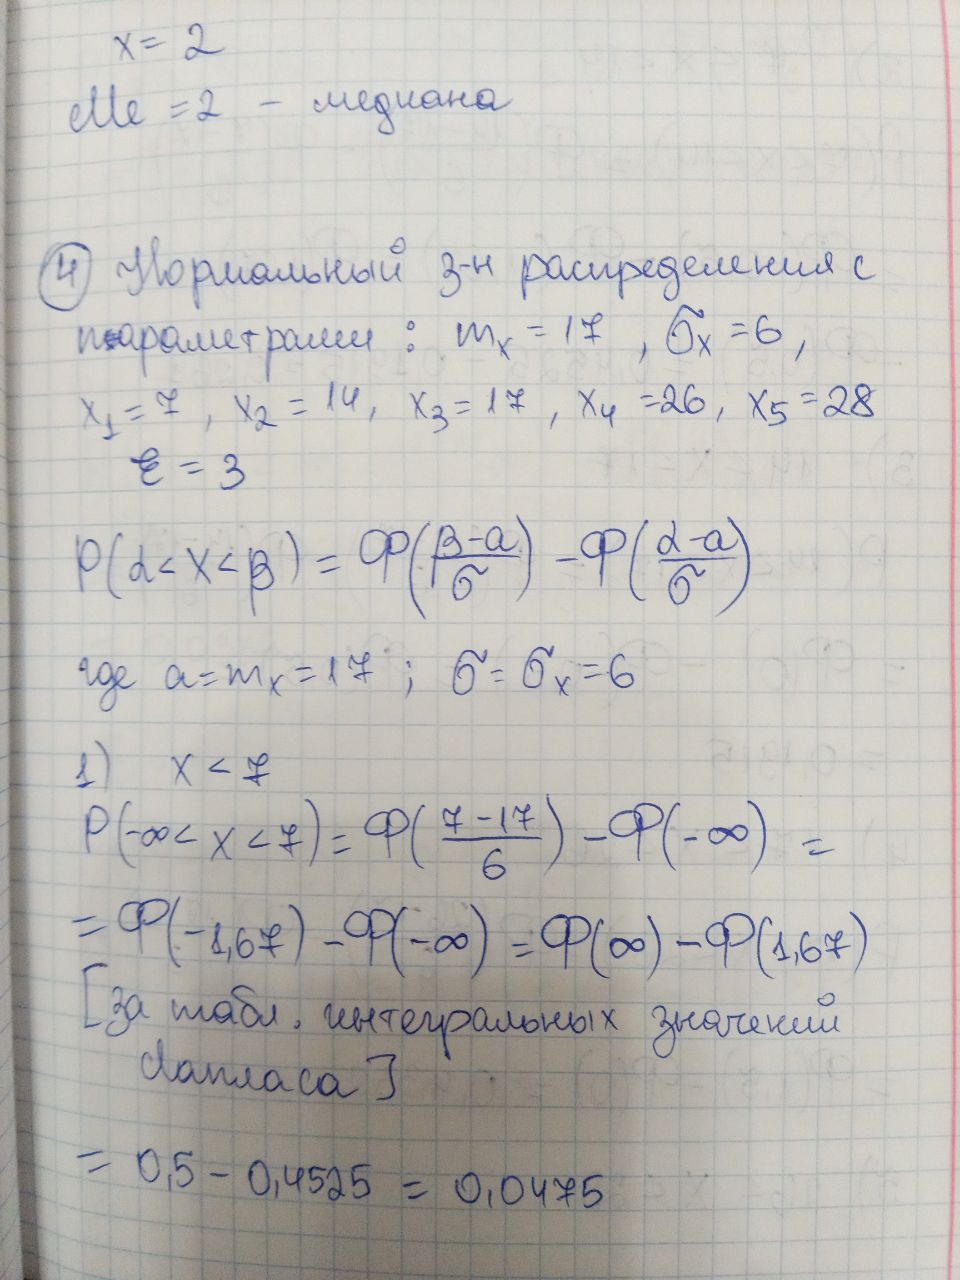 x = 2
Me = 2 - медиана
4 Нормальный з-н распределения с
параметрами : mx = 17 , σx = 6 ,
x1 = 7 , x2 = 14 , x3 = 17 , x4 = 26 , x5 = 28
ε = 3
P(α < X < β) = Ф((β-a)/σ) - Ф((α-a)/σ)
где a = mx = 17 ; σ = σx = 6
1) x < 7
P(-∞ < x < 7) = Ф((7-17)/6) - Ф(-∞) =
= Ф(-1,67) - Ф(-∞) = Ф(∞) - Ф(1,67)
[за табл. интегральных значений
Лапласа]
= 0,5 - 0,4525 = 0,0475